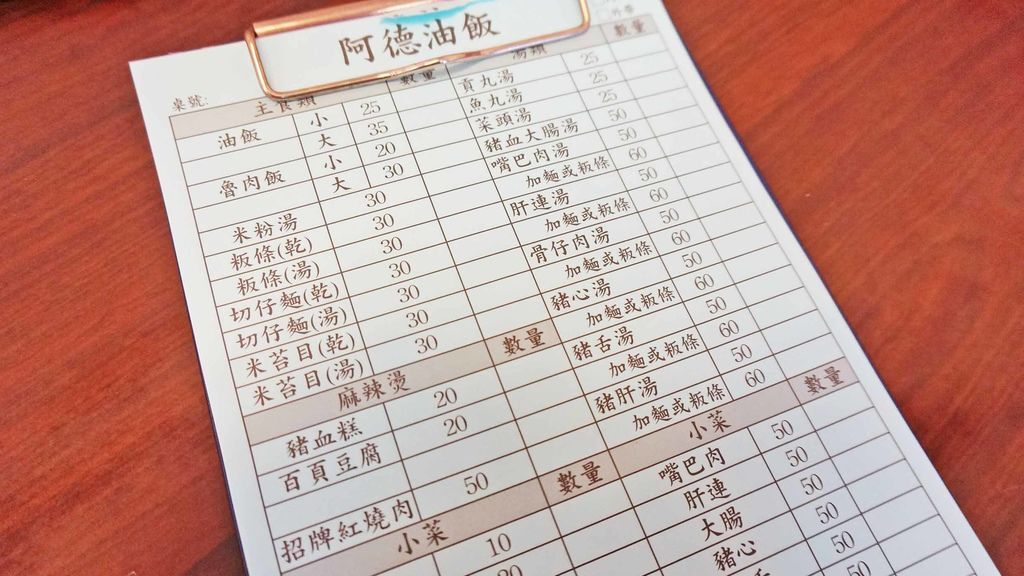 阿德油飯
桌號:
主食類 數量
油飯 小 25
大 35
魯肉飯 小 20
大 30
米粉湯 30
板條(乾) 30
板條(湯) 30
切仔麵(乾) 30
切仔麵(湯) 30
米苔目(乾) 30
米苔目(湯) 30
麻辣燙 數量
豬血糕 20
百頁豆腐 20
招牌紅燒肉 50
小菜 數量
10
湯類 數量
貢丸湯 25
魚丸湯 25
菜頭湯 25
豬血大腸湯 50
嘴巴肉湯 50
加麵或板條 60
肝連湯 50
加麵或板條 60
骨仔肉湯 50
加麵或板條 60
豬心湯 50
加麵或板條 60
豬舌湯 50
加麵或板條 60
豬肝湯 50
加麵或板條 60
小菜 數量
嘴巴肉 50
肝連 50
大腸 50
豬心 50